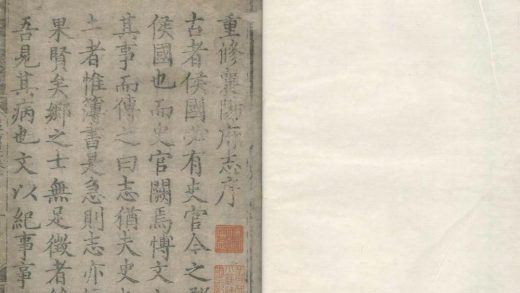 重修襄陽府志序
古者侯國必有史官今之郡
侯國也而史官闕焉慱文
其事而傳之曰志猶夫史
士者惟簿書是急則志亦
果賢矣鄉之士無足徵者
吾見其病也文以紀事事